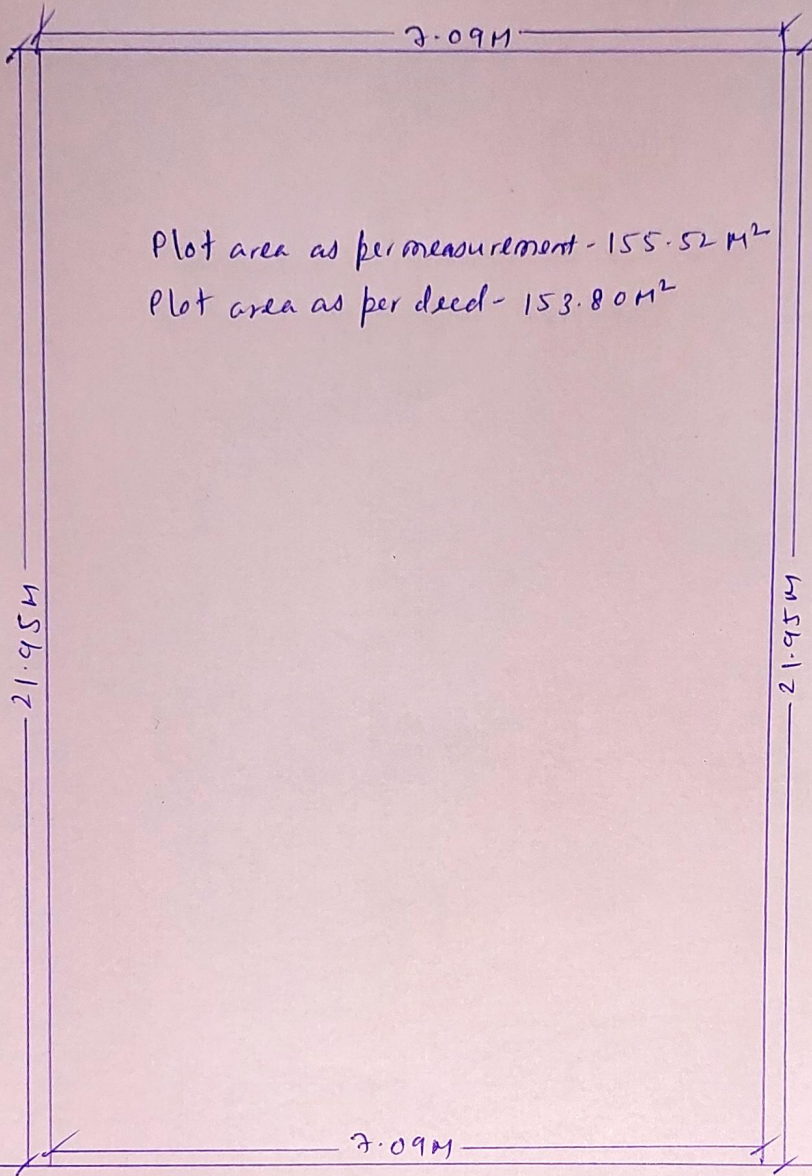 7.09M
Plot area as per measurement - 155.52 M²
Plot area as per deed - 153.80 M²
21.95M
21.95M
7.09M